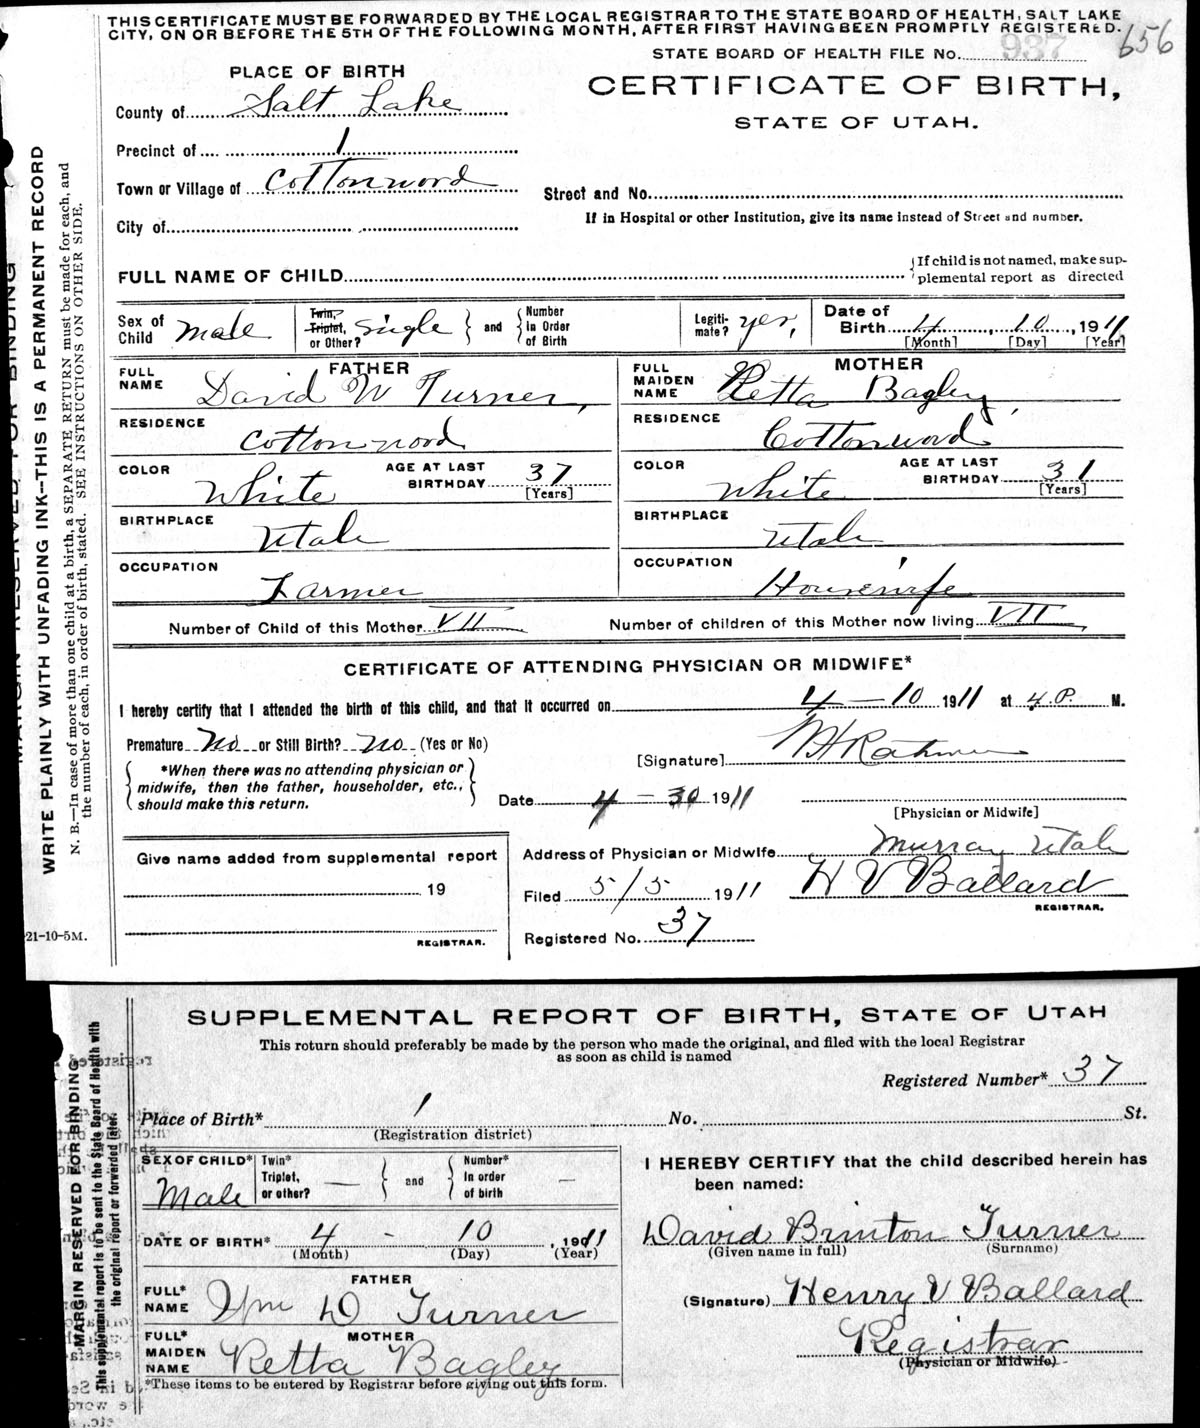 THIS CERTIFICATE MUST BE FORWARDED BY THE LOCAL REGISTRAR TO THE STATE BOARD OF HEALTH, SALT LAKE
CITY, ON OR BEFORE THE 5TH OF THE FOLLOWING MONTH, AFTER FIRST HAVING BEEN PROMPTLY REGISTERED.
656
STATE BOARD OF HEALTH FILE No. 937
PLACE OF BIRTH
CERTIFICATE OF BIRTH,
STATE OF UTAH.
County of Salt Lake
Precinct of 1
Town or Village of Cottonwood
Street and No.
If in Hospital or other Institution, give its name instead of Street and number.
City of
FULL NAME OF CHILD
If child is not named, make sup-
plemental report as directed
Sex of Child Male
Twin, Triplet, or Other? Single and Number In Order of Birth
Legiti-mate? yes,
Date of Birth 4, 10, 1911
[Month] [Day] [Year]
FATHER
FULL NAME David W Turner,
RESIDENCE Cottonwood
COLOR White AGE AT LAST BIRTHDAY 37 [Years]
BIRTHPLACE Utah
OCCUPATION Farmer
MOTHER
FULL MAIDEN NAME Retta Bagley,
RESIDENCE Cottonwood
COLOR White AGE AT LAST BIRTHDAY 31 [Years]
BIRTHPLACE Utah
OCCUPATION Housewife
Number of Child of this Mother VII Number of children of this Mother now living VII
CERTIFICATE OF ATTENDING PHYSICIAN OR MIDWIFE*
I hereby certify that I attended the birth of this child, and that it occurred on 4 – 10 1911 at 4 P. M.
Premature No or Still Birth? No (Yes or No)
[Signature]
*When there was no attending physician or
midwife, then the father, householder, etc.,
should make this return.
Date 4 – 30 1911
[Physician or Midwife]
Give name added from supplemental report
19
REGISTRAR.
Address of Physician or Midwife Murray Utah
Filed 5/5 1911 H V Ballard
REGISTRAR.
Registered No. 37
21-10-5M.
MARGIN RESERVED FOR BINDING
WRITE PLAINLY WITH UNFADING INK--THIS IS A PERMANENT RECORD
N. B.—In case of more than one child at a birth, a SEPARATE RETURN must be made for each, and
the number of each, in order of birth, stated. SEE INSTRUCTIONS ON OTHER SIDE.
SUPPLEMENTAL REPORT OF BIRTH, STATE OF UTAH
This return should preferably be made by the person who made the original, and filed with the local Registrar
as soon as child is named
Registered Number* 37
Place of Birth* 1 No. St.
(Registration district)
SEX OF CHILD* Male
Twin* Triplet, or other? — and Number* In order of birth —
DATE OF BIRTH* 4 - 10, 1911
(Month) (Day) (Year)
FATHER
FULL* NAME Wm D Turner
MOTHER
FULL* MAIDEN NAME Retta Bagley
*These items to be entered by Registrar before giving out this form.
I HEREBY CERTIFY that the child described herein has
been named:
David Brinton Turner
(Given name in full) (Surname)
(Signature) Henry V Ballard
Registrar
(Physician or Midwife)
MARGIN RESERVED FOR BINDING
This supplemental report is to be sent to the State Board of Health with
the original report or forwarded later.